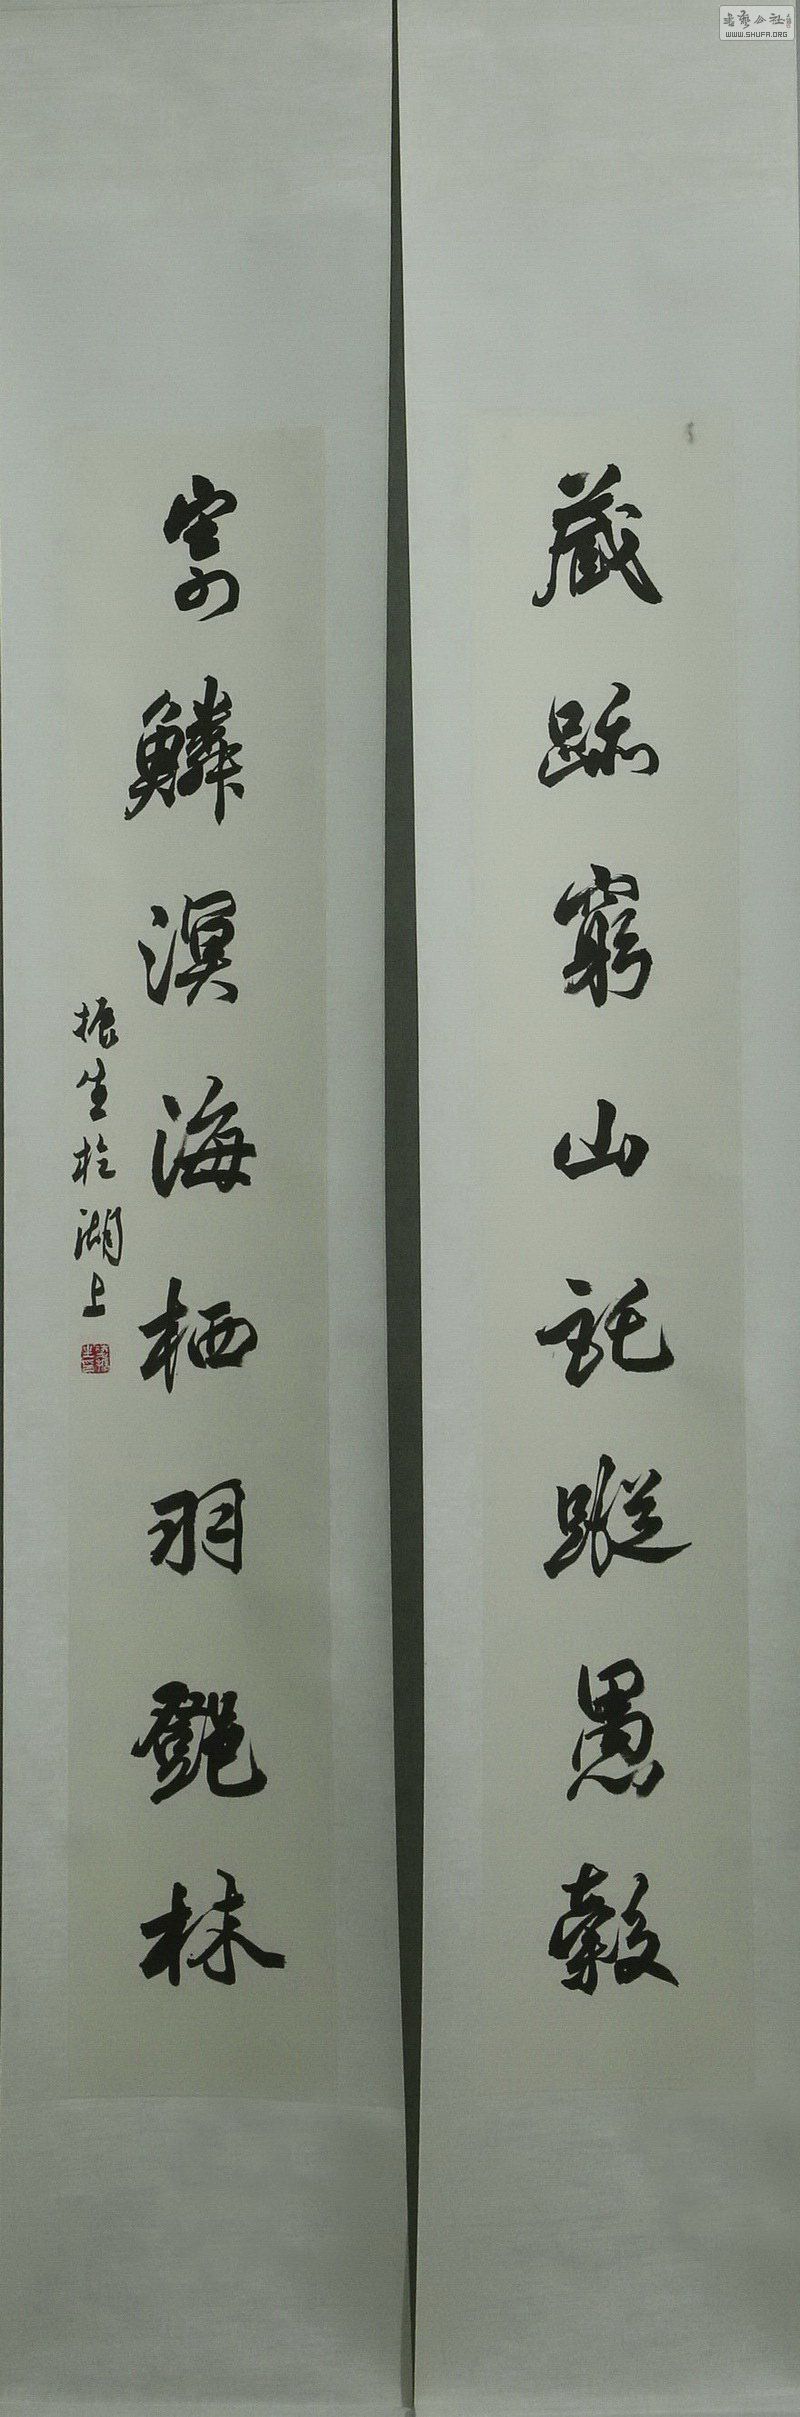 藏跡窮山託蹤愚轂
寄鱗溟海栖羽鄧林
振生於湖上
書藝公社
WWW.SHUFA.ORG